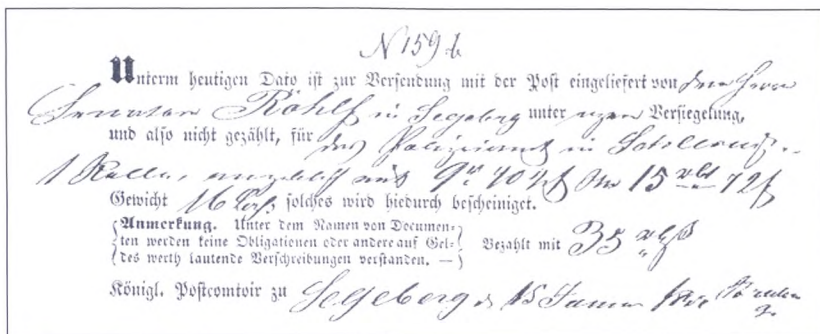 N 159 b
Unterm heutigen Dato ist zur Versendung mit der Post eingeliefert von dem Herrn
Senator Röhlf in Segeberg unter Versiegelung,
und also nicht gezählt, für das Polizeiamt in
1 Rolle, angeblich mit 15 rbt
Gewicht 16 Loth solches wird hiedurch bescheiniget.
Anmerkung. Unter dem Namen von Documen-
ten werden keine Obligationen oder andere auf Gel-
des werth lautende Verschreibungen verstanden. —
Bezahlt mit 35 rbß
Königl. Postcomtoir zu Segeberg d. 15 Januar